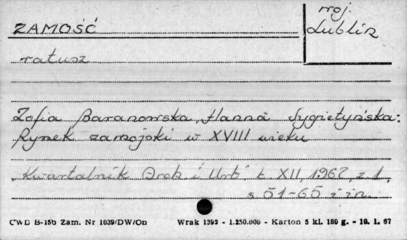 ZAMOŚĆ
woj.
Lublin
ratusz
Zofia Baranowska, Hanna Sygietyńska:
Rynek zamojski w XVIII wieku
"Kwartalnik Arch. i Urb" t. XII, 1967, z. 1,
s 51-65 i in.
CWD B-15b Zam. Nr 1039/DW/On Wrak 1392 - 1.250.000 - Karton 5 kl. 180 g. - 10. I. 67